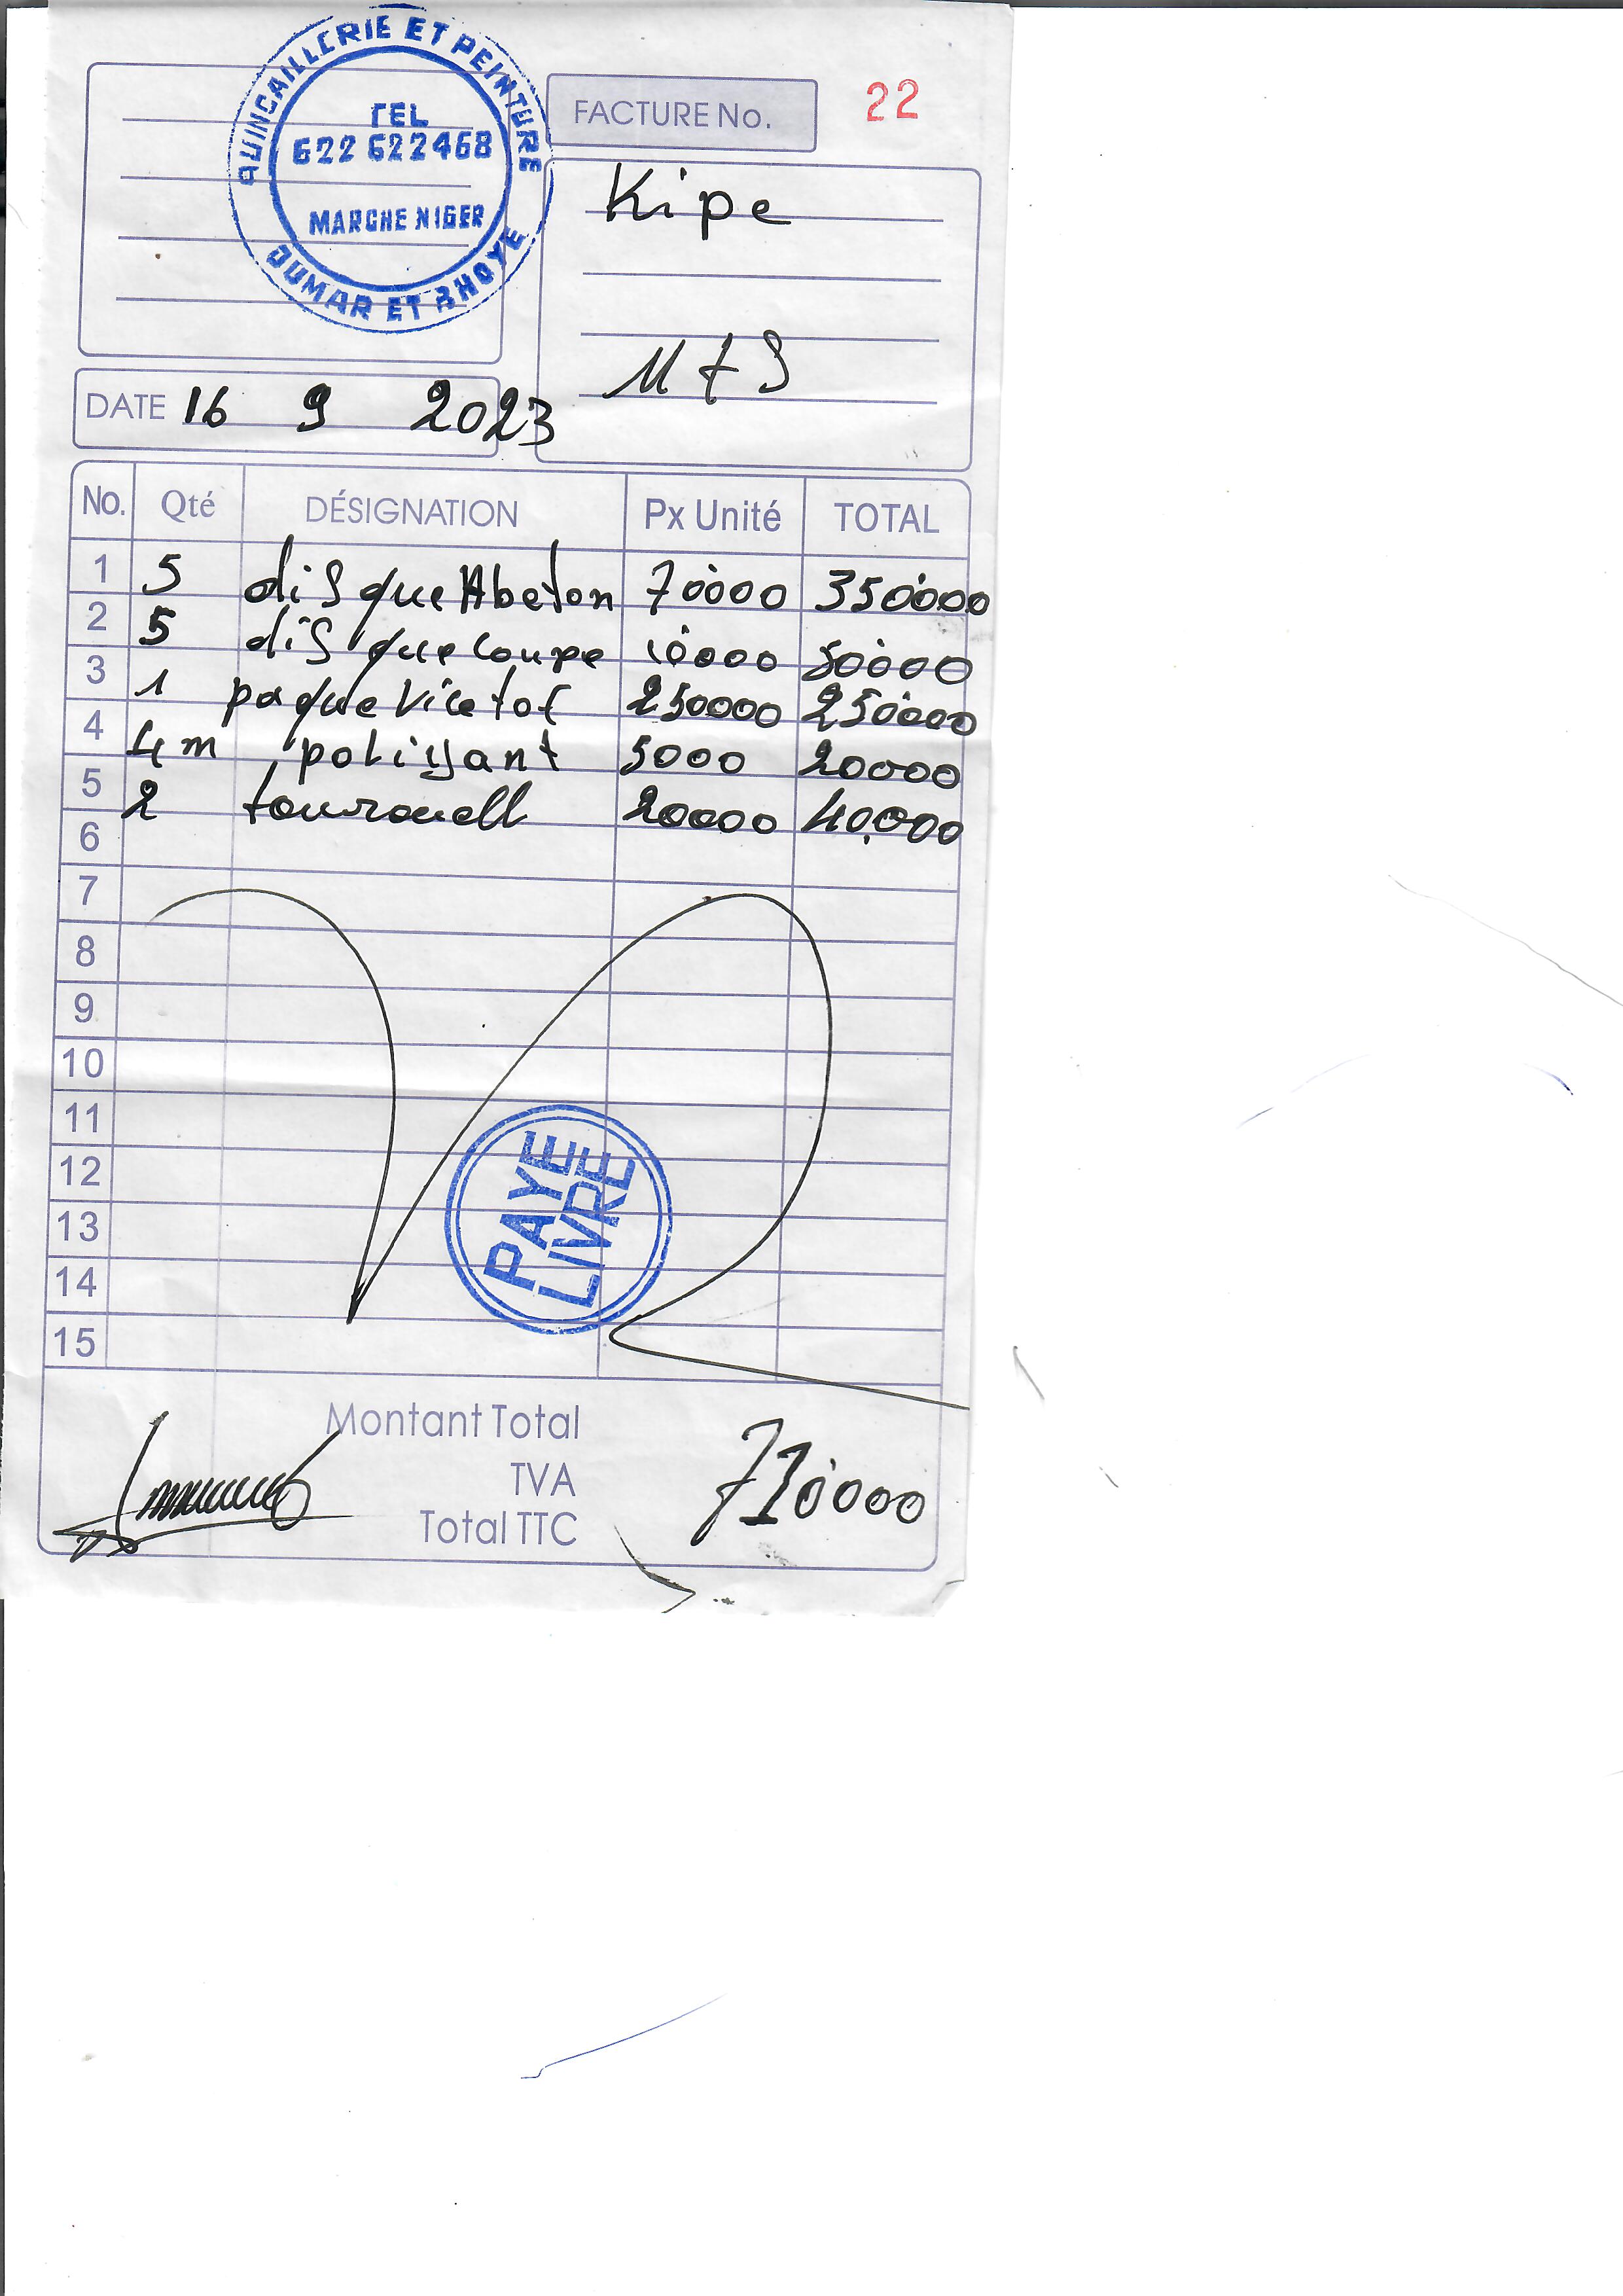 QUINCAILLERIE ET PEINTURE
TEL
622 622468
MARCHE NIGER
OUMAR ET BHOYE
FACTURE No. 22
Kipe
DATE 16 9 2023
No. Qté DÉSIGNATION Px Unité TOTAL
1 5 disque Abeton 70000 350000
2 5 disque coupe 10000 50000
3 1 paque Vice tol 250000 250000
4 4m poliyant 5000 20000
5 2 20000 40.000
6
7
8
9
10
11
12
13
14
15
PAYE
LIVRE
Montant Total
TVA
Total TTC
710000